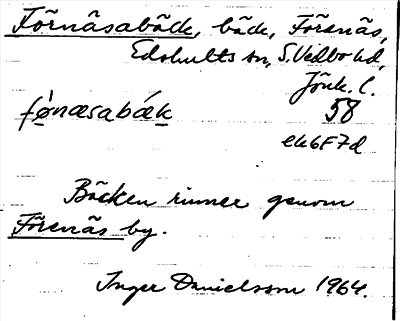 Förnäsabäck, bäck, Föresnäs,
Edshults sn, S. Vedbo hd,
Jönk. l.
fö̱næsabǽk 58
ek6F7d
Bäcken rinner genom
Föresnäs by.
Inger Danielsson 1964.